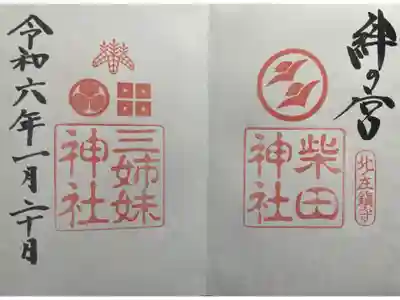 絆の宮
柴田
神社
北庄鎮守
三姉妹
神社
令和六年一月二十日